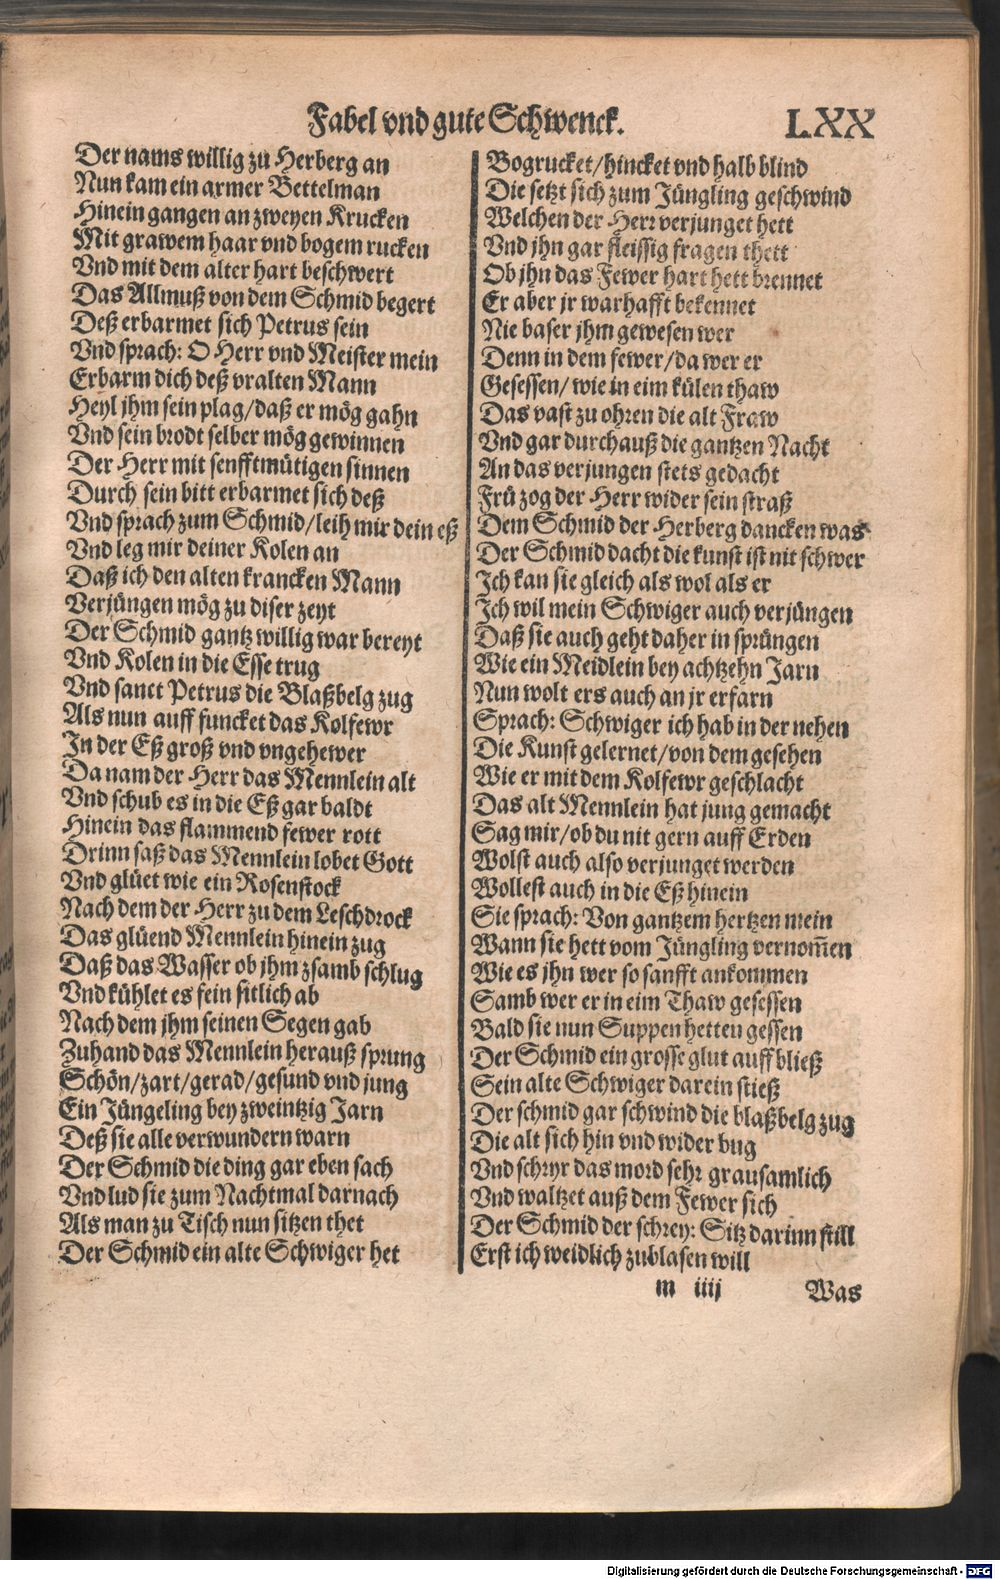 Fabel vnd gute Schwenck. LXX
Der nams willig zu Herberg an
Nun kam ein armer Bettelman
Hinein gangen an zweyen Krucken
Mit grawem haar vnd bogem rucken
Vnd mit dem alter hart beschwert
Das Allmuß von dem Schmid begert
Deß erbarmet sich Petrus sein
Vnd sprach: O Herr vnd Meister mein
Erbarm dich deß vralten Mann
Heyl jhm sein plag/daß er mög gahn
Vnd sein brodt selber mög gewinnen
Der Herr mit senfftmütigen sinnen
Durch sein bitt erbarmet sich deß
Vnd sprach zum Schmid/leih mir dein eß
Vnd leg mir deiner Kolen an
Daß ich den alten krancken Mann
Verjüngen mög zu diser zeyt
Der Schmid gantz willig war bereyt
Vnd Kolen in die Esse trug
Vnd sanct Petrus die Blaßbelg zug
Als nun auff funcket das Kolfewr
In der Eß groß vnd vngehewer
Da nam der Herr das Mennlein alt
Vnd schub es in die Eß gar baldt
Hinein das flammend fewer rott
Drinn saß das Mennlein lobet Gott
Vnd glüet wie ein Rosenstock
Nach dem der Herr zu dem Leschdrock
Das glüend Mennlein hinein zug
Daß das Wasser ob jhm zsamb schlug
Vnd kühlet es fein sitlich ab
Nach dem jhm seinen Segen gab
Zuhand das Mennlein herauß sprung
Schön/zart/gerad/gesund vnd jung
Ein Jüngeling bey zweintzig Jarn
Deß sie alle verwundern warn
Der Schmid die ding gar eben sach
Vnd lud sie zum Nachtmal darnach
Als man zu Tisch nun sitzen thet
Der Schmid ein alte Schwiger het
Bogrucket/hincket vnd halb blind
Die setzt sich zum Jüngling geschwind
Welchen der Herr verjunget hett
Vnd jhn gar fleissig fragen thett
Ob jhn das Fewer hart hett brennet
Er aber jr warhafft bekennet
Nie baser jhm gewesen wer
Denn in dem fewer/da wer er
Gesessen/wie in eim külen thaw
Das vast zu ohren die alt Fraw
Vnd gar durchauß die gantzen Nacht
An das verjungen stets gedacht
Frü zog der Herr wider sein straß
Dem Schmid der Herberg dancken was
Der Schmid dacht die kunst ist nit schwer
Ich kan sie gleich als wol als er
Ich wil mein Schwiger auch verjüngen
Daß sie auch geht daher in sprüngen
Wie ein Meidlein bey achtzehn Jarn
Nun wolt ers auch an jr erfarn
Sprach: Schwiger ich hab in der nehen
Die Kunst gelernet/von dem gesehen
Wie er mit dem Kolfewr geschlacht
Das alt Mennlein hat jung gemacht
Sag mir/ob du nit gern auff Erden
Wolst auch also verjunget werden
Wollest auch in die Eß hinein
Sie sprach: Von gantzem hertzen mein
Wann sie hett vom Jüngling vernom̅en
Wie es jhn wer so sanfft ankommen
Samb wer er in eim Thaw gesessen
Bald sie nun Suppen hetten gessen
Der Schmid ein grosse glut auff bließ
Sein alte Schwiger darein stieß
Der schmid gar schwind die blaßbelg zug
Die alt sich hin vnd wider bug
Vnd schryr das mord sehr grausamlich
Vnd waltzet auß dem Fewer sich
Der Schmid der schrey: Sitz darinn still
Erst ich weidlich zublasen will
m iiij Was
Digitalisierung gefördert durch die Deutsche Forschungsgemeinschaft - DFG